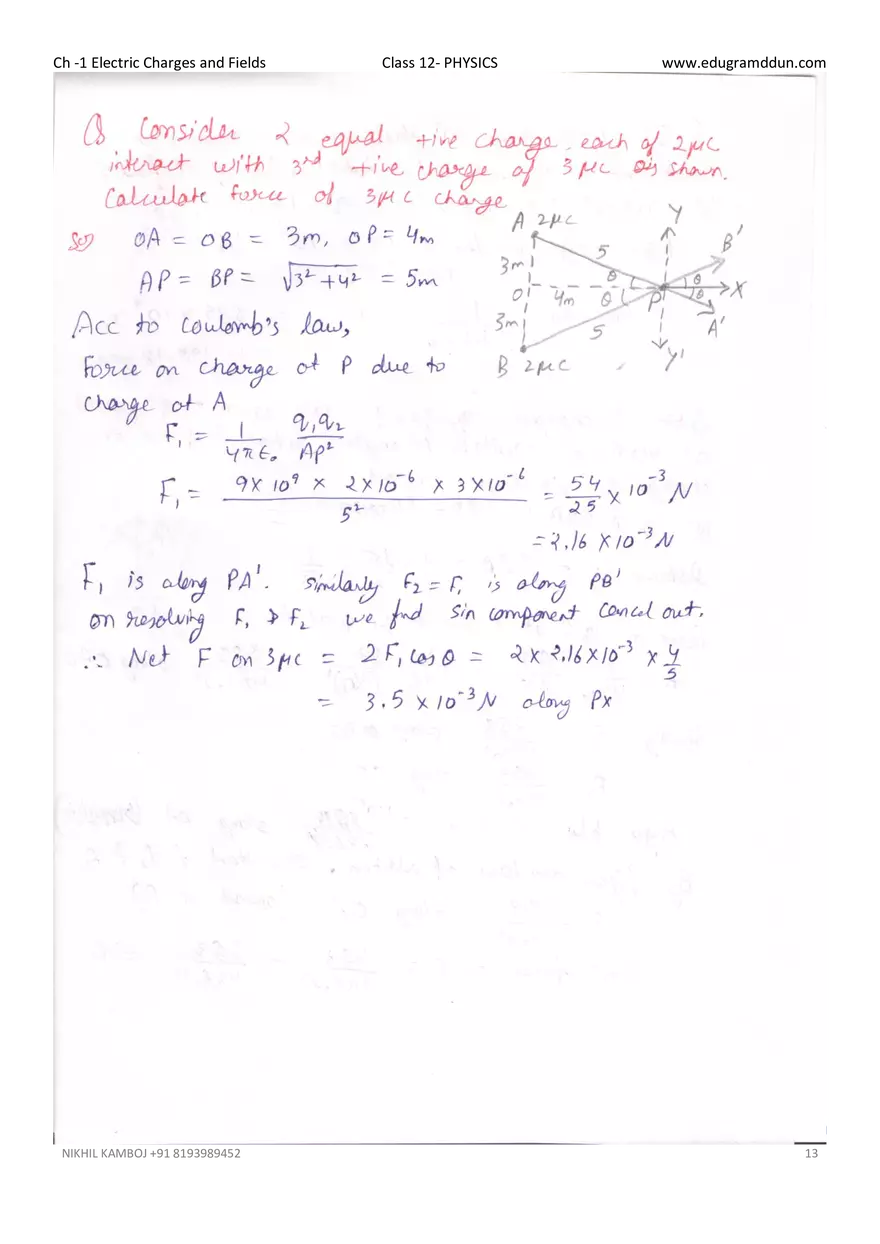 Ch -1 Electric Charges and Fields Class 12- PHYSICS www.edugramddun.com
Q Consider 2 equal +ive charge each of 2μC
interact with 3rd +ive charge of 3μC as shown.
Calculate force of 3μC charge
Sol OA = OB = 3m, OP = 4m
AP = BP = √3²+4² = 5m
A 2μC
Y
B'
5
3m
θ
θ
O 4m θ P X
θ
3m
5
A'
B 2μC
Y'
Acc to Coulomb's law,
Force on charge at P due to
charge at A
F₁ = 1/4πϵ₀ q₁q₂/AP²
F₁ = 9×10⁹ × 2×10⁻⁶ × 3×10⁻⁶/5² = 54/25 × 10⁻³ N
= 2.16 × 10⁻³ N
F₁ is along PA'. Similarly F₂ = F₁ is along PB'
on resolving F₁ & F₂ we find sin component cancel out.
∴ Net F on 3μC = 2F₁ cos θ = 2 × 2.16 × 10⁻³ × 4/5
= 3.5 × 10⁻³ N along PX
NIKHIL KAMBOJ +91 8193989452 13